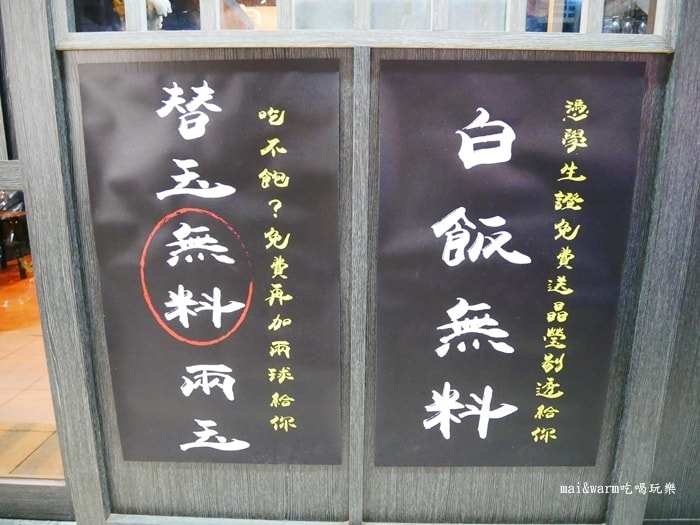 憑學生證免費送晶瑩剔透給你
白飯無料
吃不飽？免費再加兩球給你
替玉無料兩玉
mai&warm吃喝玩樂